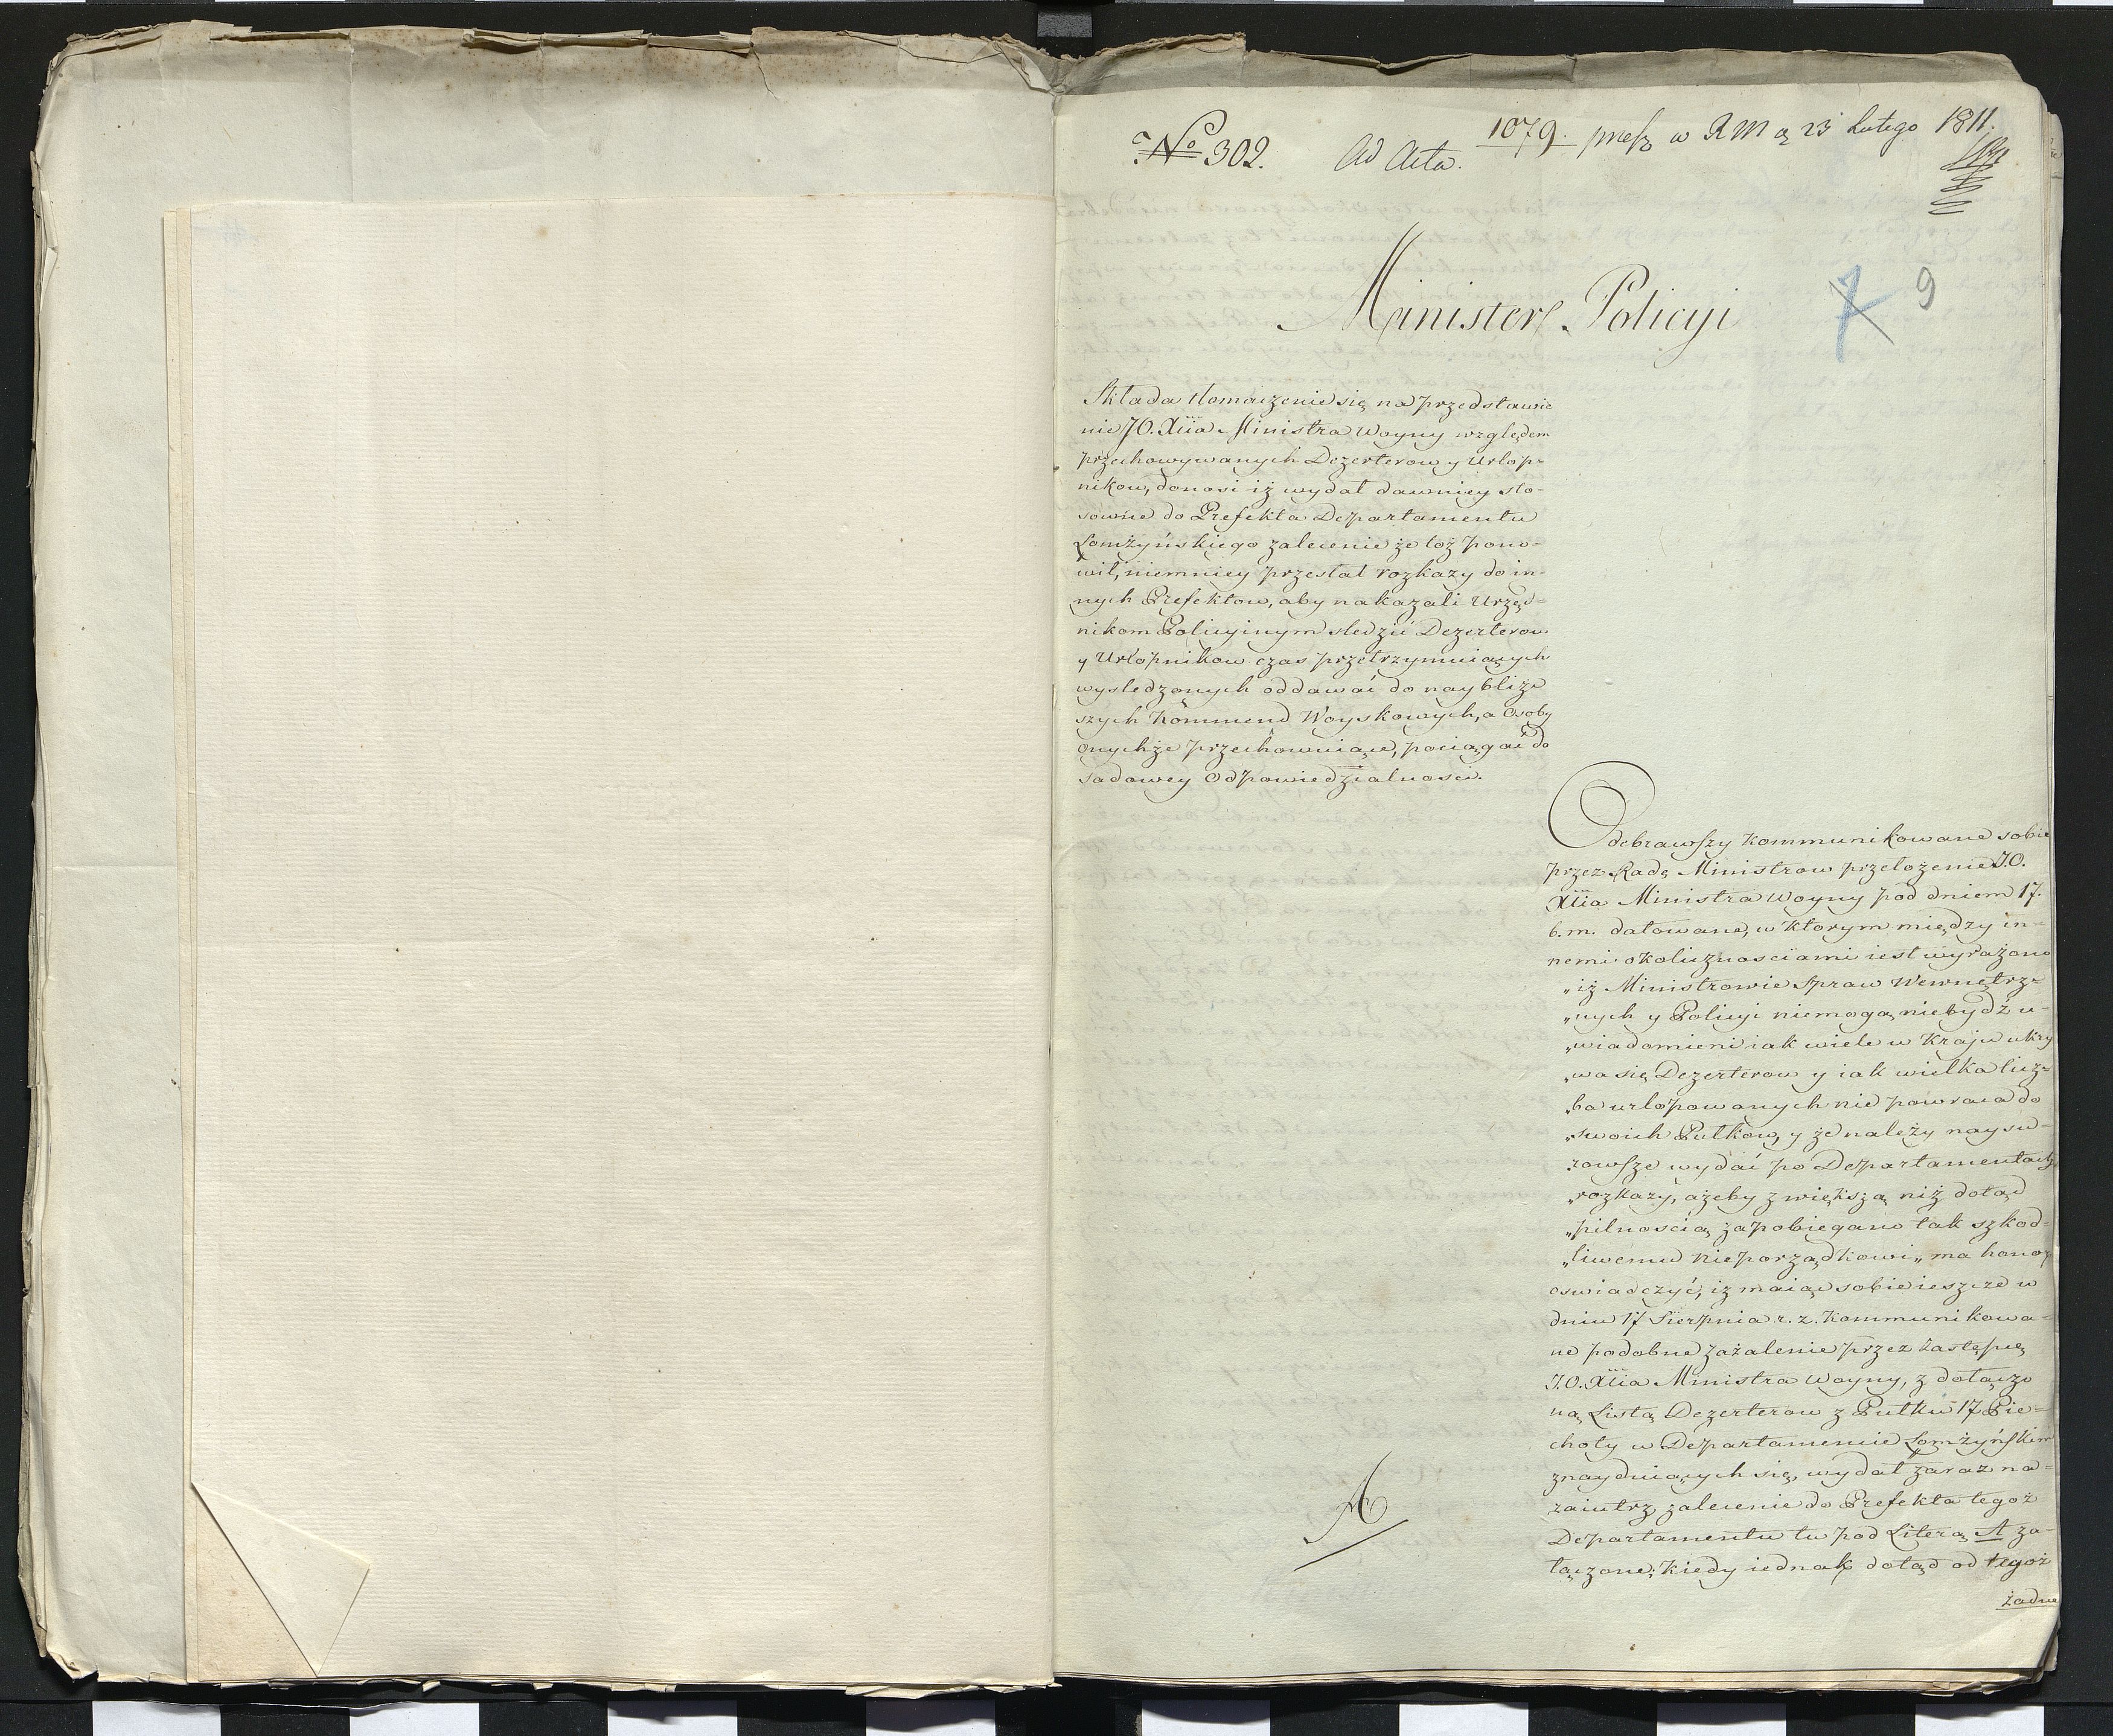 No 302. Ad Acta. 1079. prąs w RM 23 Lutego 1811.
7 9
Minister Policyi
Składa tłomaczenie się na przedstawie
nie JO. Xcia Ministra Woyny względem
przechowywanych Dezerterow y Urlop-
nikow, donosi iż wydał dawniey sto-
sowne do Prefekta Departamentu
Łomżyńskiego zalecenie że toż pono-
wił, niemniey przesłał rozkazy do in-
nych Prefektow, aby nakazali Urzęd-
nikom Policyinym sledzić Dezerterow
y Urlopnikow czas przetrzymuiących
wysledzonych oddawać do naybliż-
szych Kommend Woyskowych, a Osoby
onychże przechowuiące, pociągać do
sadowey Odpowiedzialnosci.
Odebrawszy kommunikowane sobie
przez Radę Ministrow przełożenie J.O.
Xcia Ministra Woyny pod dniem 17.
b.m. datowane, w ktorym między in-
nemi okolicznosciami iest wyrażono
„iż Ministrowie Spraw Wewnętrz-
„nych y Policyi niemogą niebydź u-
„wiadomieni iak wiele w Kraju ukry
„wa się Dezerterow y iak wielka licz-
„ba urlopowanych nie powraca do
„swoich Pułkow, y że należy naysu-
„rowsze wydać po Departamentach
„rozkazy, ażeby z większą niż dotąd
„pilnoscią zapobiegano tak szkod-
„liwemu nieporządkowi„ ma honor
oswiadczyć, iż maiąc sobie ieszcze w
dniu 17 Sierpnia r. z. kommunikowa-
ne podobne zażalenie przez Zastępcę
J.O. Xcia Ministra Woyny, z dołączo
ną Listą Dezerterow z Pułku 17 Pie-
choty w Departamencie Łomżyńskim
znayduiących się, wydał zaraz na-
zaiutrz zalecenie do Prefekta tegoż
A
Departamentu tu pod Literą A za-
łączone; Kiedy iednak dotąd od tegoż
żadne